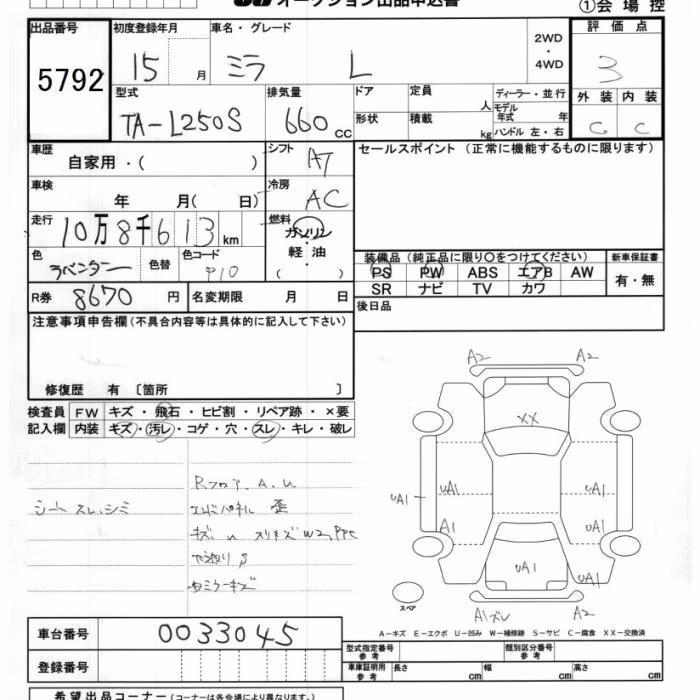 オークション出品申込書
①会場控
出品番号
5792
初度登録年月
15 月
車名・グレード
ミラ L
2WD
・
4WD
評価点
3
型式
TA-L250S
排気量
660 cc
ドア
定員
人
ディーラー・並行
モデル年式 年
外装 内装
C C
形状
積載
kg
ハンドル 左・右
車歴
自家用・( )
シフト
AT
セールスポイント (正常に機能するものに限ります)
車検
年 月( 日)
冷房
AC
走行
10万8千613 km
燃料
ガソリン
軽油
( ・ )
色
ラベンダー
色替
色コード
P10
装備品 (純正品に限り○をつけてください)
新車保証書
PS PW ABS エアB AW
有・無
SR ナビ TV カワ
R券
8670 円
名変期限 月 日
後日品
注意事項申告欄 (不具合内容等は具体的に記入して下さい)
修復歴 有 〔箇所 〕
検査員
記入欄
FW キズ・飛石・ヒビ割・リペア跡・×要
内装 キズ・汚レ・コゲ・穴・スレ・キレ・破レ
Rフロア、A、U
シート スレ、シミ
エンドパネル 歪
キズ U
W2,
S
キズ
A2 A2
XX
UA1 UA1 UA1
A1 UA1
UA1 UA1
スペア
A1ズレ A2
A-キズ E-エクボ U-凹み W-補修跡 S-サビ C-腐食 XX-交換済
車台番号
0033045
登録番号
型式指定番号
参考
類別区分番号
参考
車庫証明用
参考
長さ cm
幅 cm
高さ cm
希望出品コーナー (コーナーは各会場により異なります。)